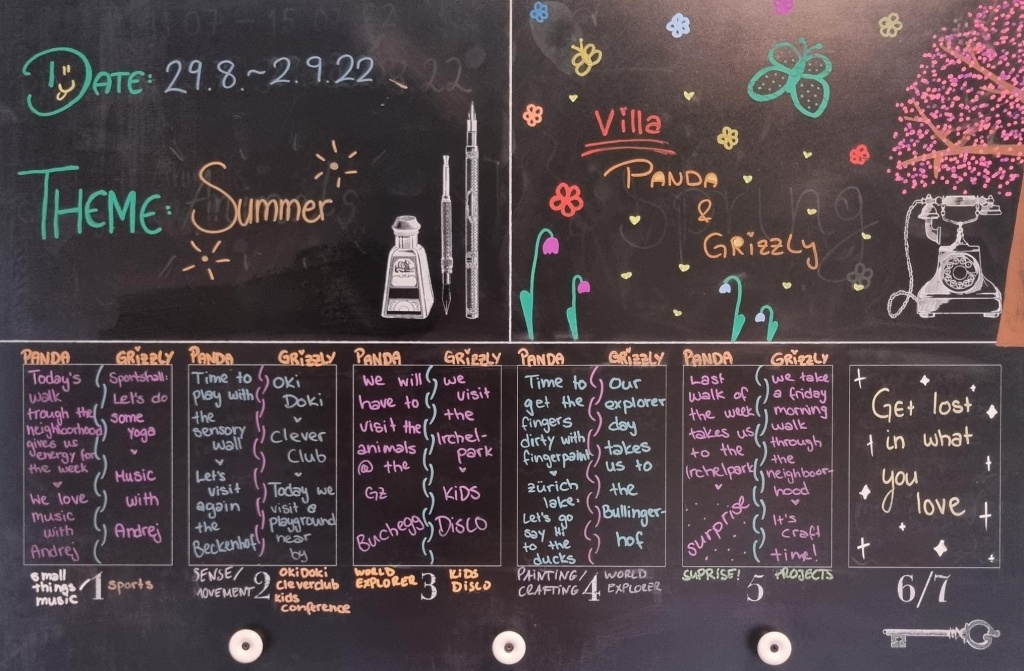 DATE: 29.8.~2.9.22
THEME: Summer
Villa
PANDA
&
GRIZZLY
PANDA GRIZZLY
Today's
walk
trough the
neighborhood
gives us
energy for
the week
We love
music
with
Andrej
Sportshall:
Let's do
some
Yoga
Music
with
Andrej
small
things/
music
1
sports
PANDA GRIZZLY
Time to
play with
the
sensory
wall
Let's
visit
again
the
Beckenhof
Oki
Doki
Clever
Club
Today we
visit a
playground
near
by
SENSE/
MOVEMENT
2
OkiDoki
cleverclub
kids
conference
PANDA GRIZZLY
We will
have to
visit the
animals
@ the
GZ
Buchegg
we
visit
the
Irchel-
park
KiDS
DISCO
WORLD
EXPLORER
3
KIDS
DISCO
PANDA GRIZZLY
Time to
get the
fingers
dirty with
fingerpaint
zürich
lake:
Let's go
say Hi
to the
ducks
Our
explorer
day
takes
us to
the
Bullinger-
hof
PAINTING/
CRAFTING
4
WORLD
EXPLORER
PANDA GRIZZLY
Last
walk of
the week
takes us
to the
Irchelpark
surprise
we take
a friday
morning
walk
through
the
neighboor-
hood
It's
craft
time!
SUPRISE!
5
PROJECTS
Get lost
in what
you
love
6/7